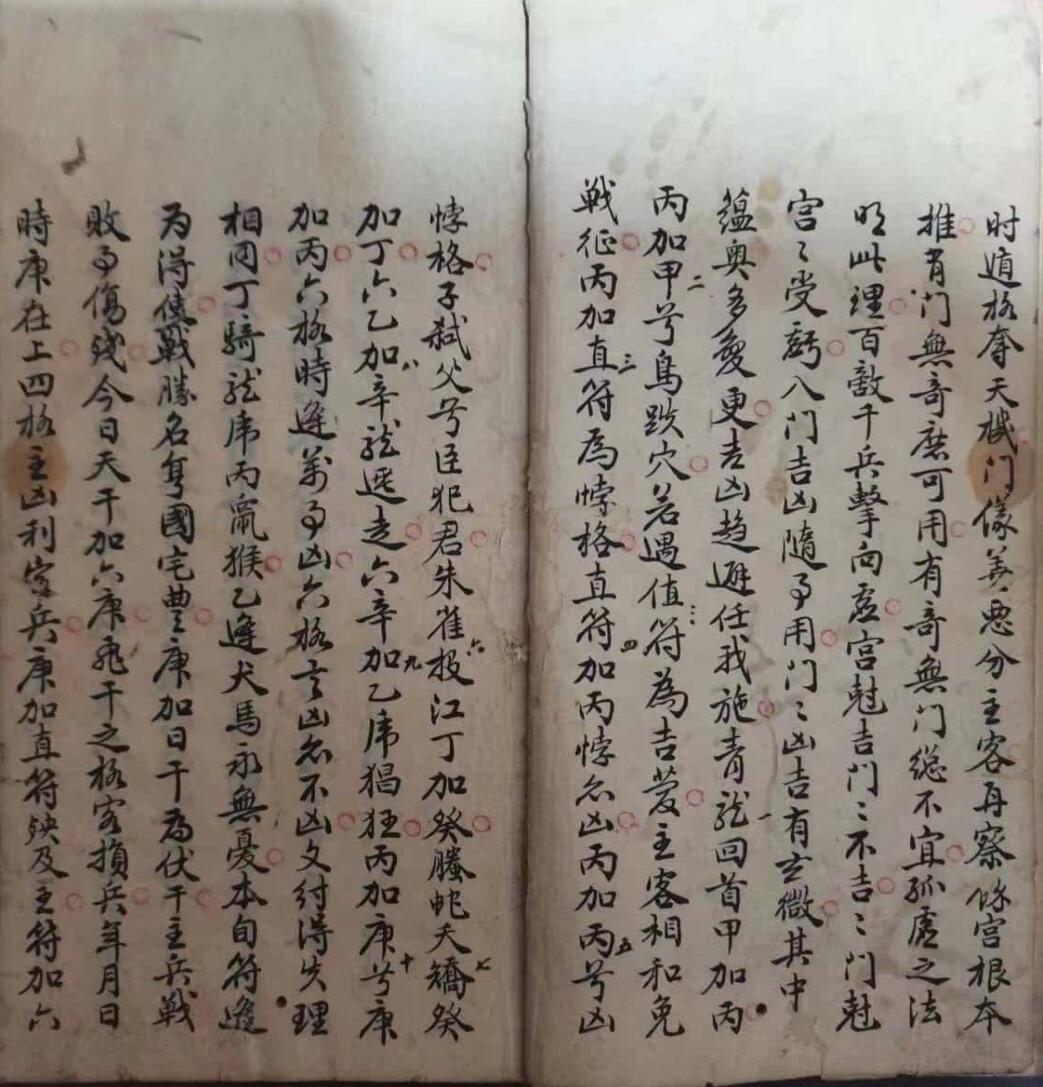 时遁格夺天機门儀善惡分主客再察條宫根本
推有门無奇庶可用有奇無门總不宜孤虛之法
明此理百敵千兵擊向虛宫尅吉门〻不吉〻门尅
宫〻受虧八门吉凶隨事用门〻凶吉有玄微其中
蕴奥多變更吉凶趋避任我施青龍回首甲加丙
丙加甲兮鳥跌穴若遇值符為吉慶主客相和免
戰征丙加直符為悖格直符加丙悖為凶丙加丙兮凶
悖格子弑父兮臣犯君朱雀投江丁加癸螣蛇夭矯癸
加丁六乙加辛龍逃走六辛加乙虎猖狂丙加庚兮庚
加丙六格時逢萬事凶六格言凶為不凶文付得失理
相同丁騎龍虎丙鼠猴乙逢犬馬永無憂本旬符逢
为得使戰勝名身國宅豊庚加日干為伏干主兵戰
敗事傷残今日天干加六庚飛干之格客損兵年月日
時庚在上四格主凶利客兵庚加直符殃及主符加六